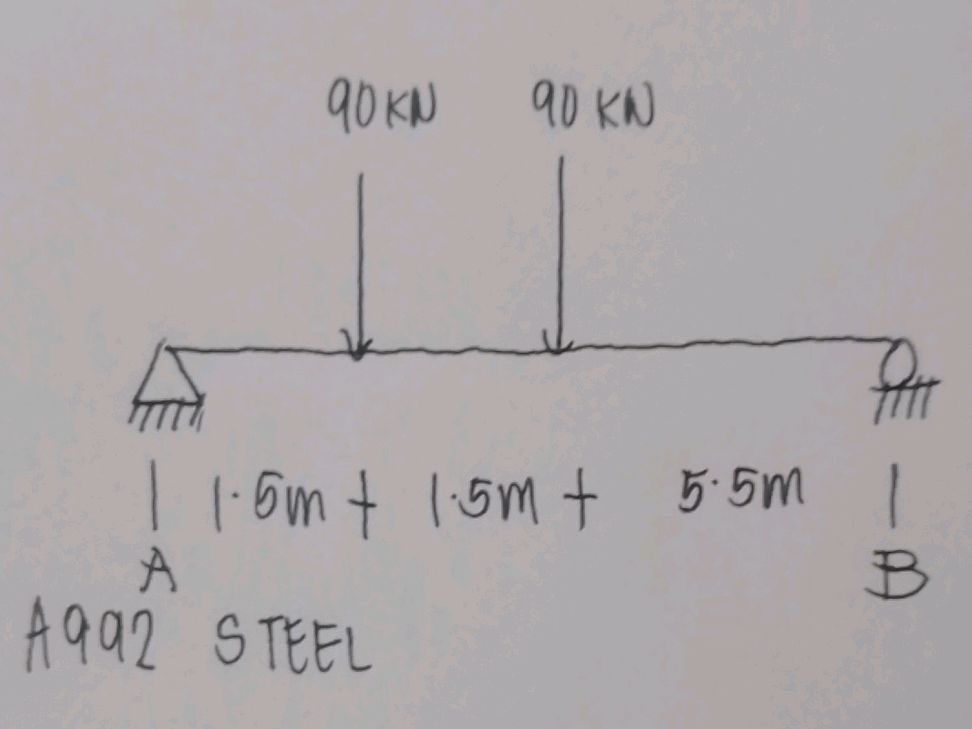 90KN 90 KN
1.5m + 1.5m + 5.5m
A B
A992 STEEL